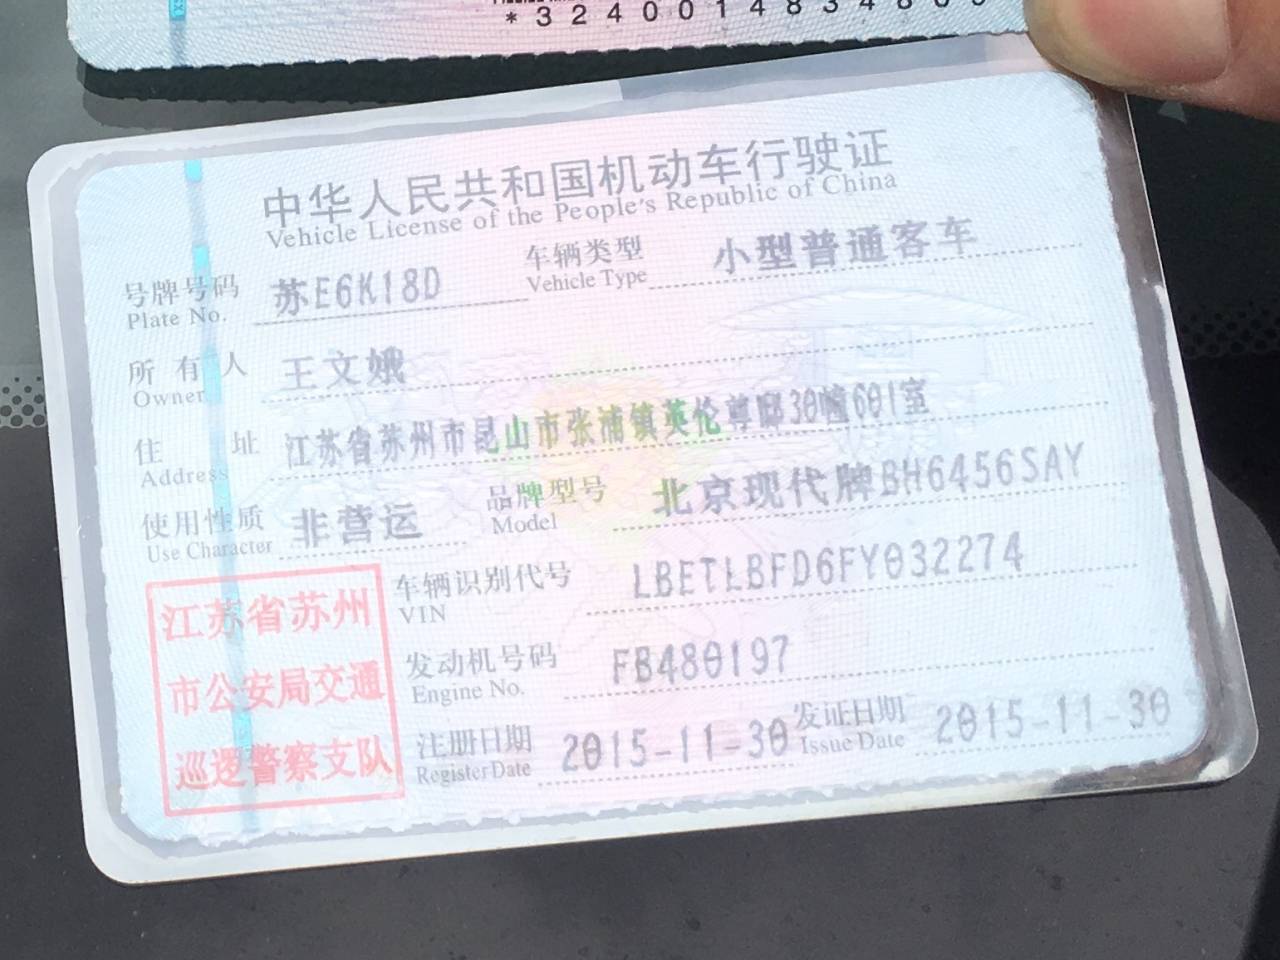 *3240014834805
中华人民共和国机动车行驶证
Vehicle License of the People's Republic of China
号牌号码 苏E6K18D 车辆类型 小型普通客车
Plate No. Vehicle Type
所有人 王文娥
Owner
住址 江苏省苏州市昆山市张浦镇英伦尊邸30幢601室
Address
使用性质 非营运 品牌型号 北京现代牌BH6456SAY
Use Character Model
车辆识别代号 LBETLBFD6FY032274
VIN
发动机号码 FB480197
Engine No.
注册日期 2015-11-30 发证日期 2015-11-30
Register Date Issue Date
江苏省苏州
市公安局交通
巡逻警察支队